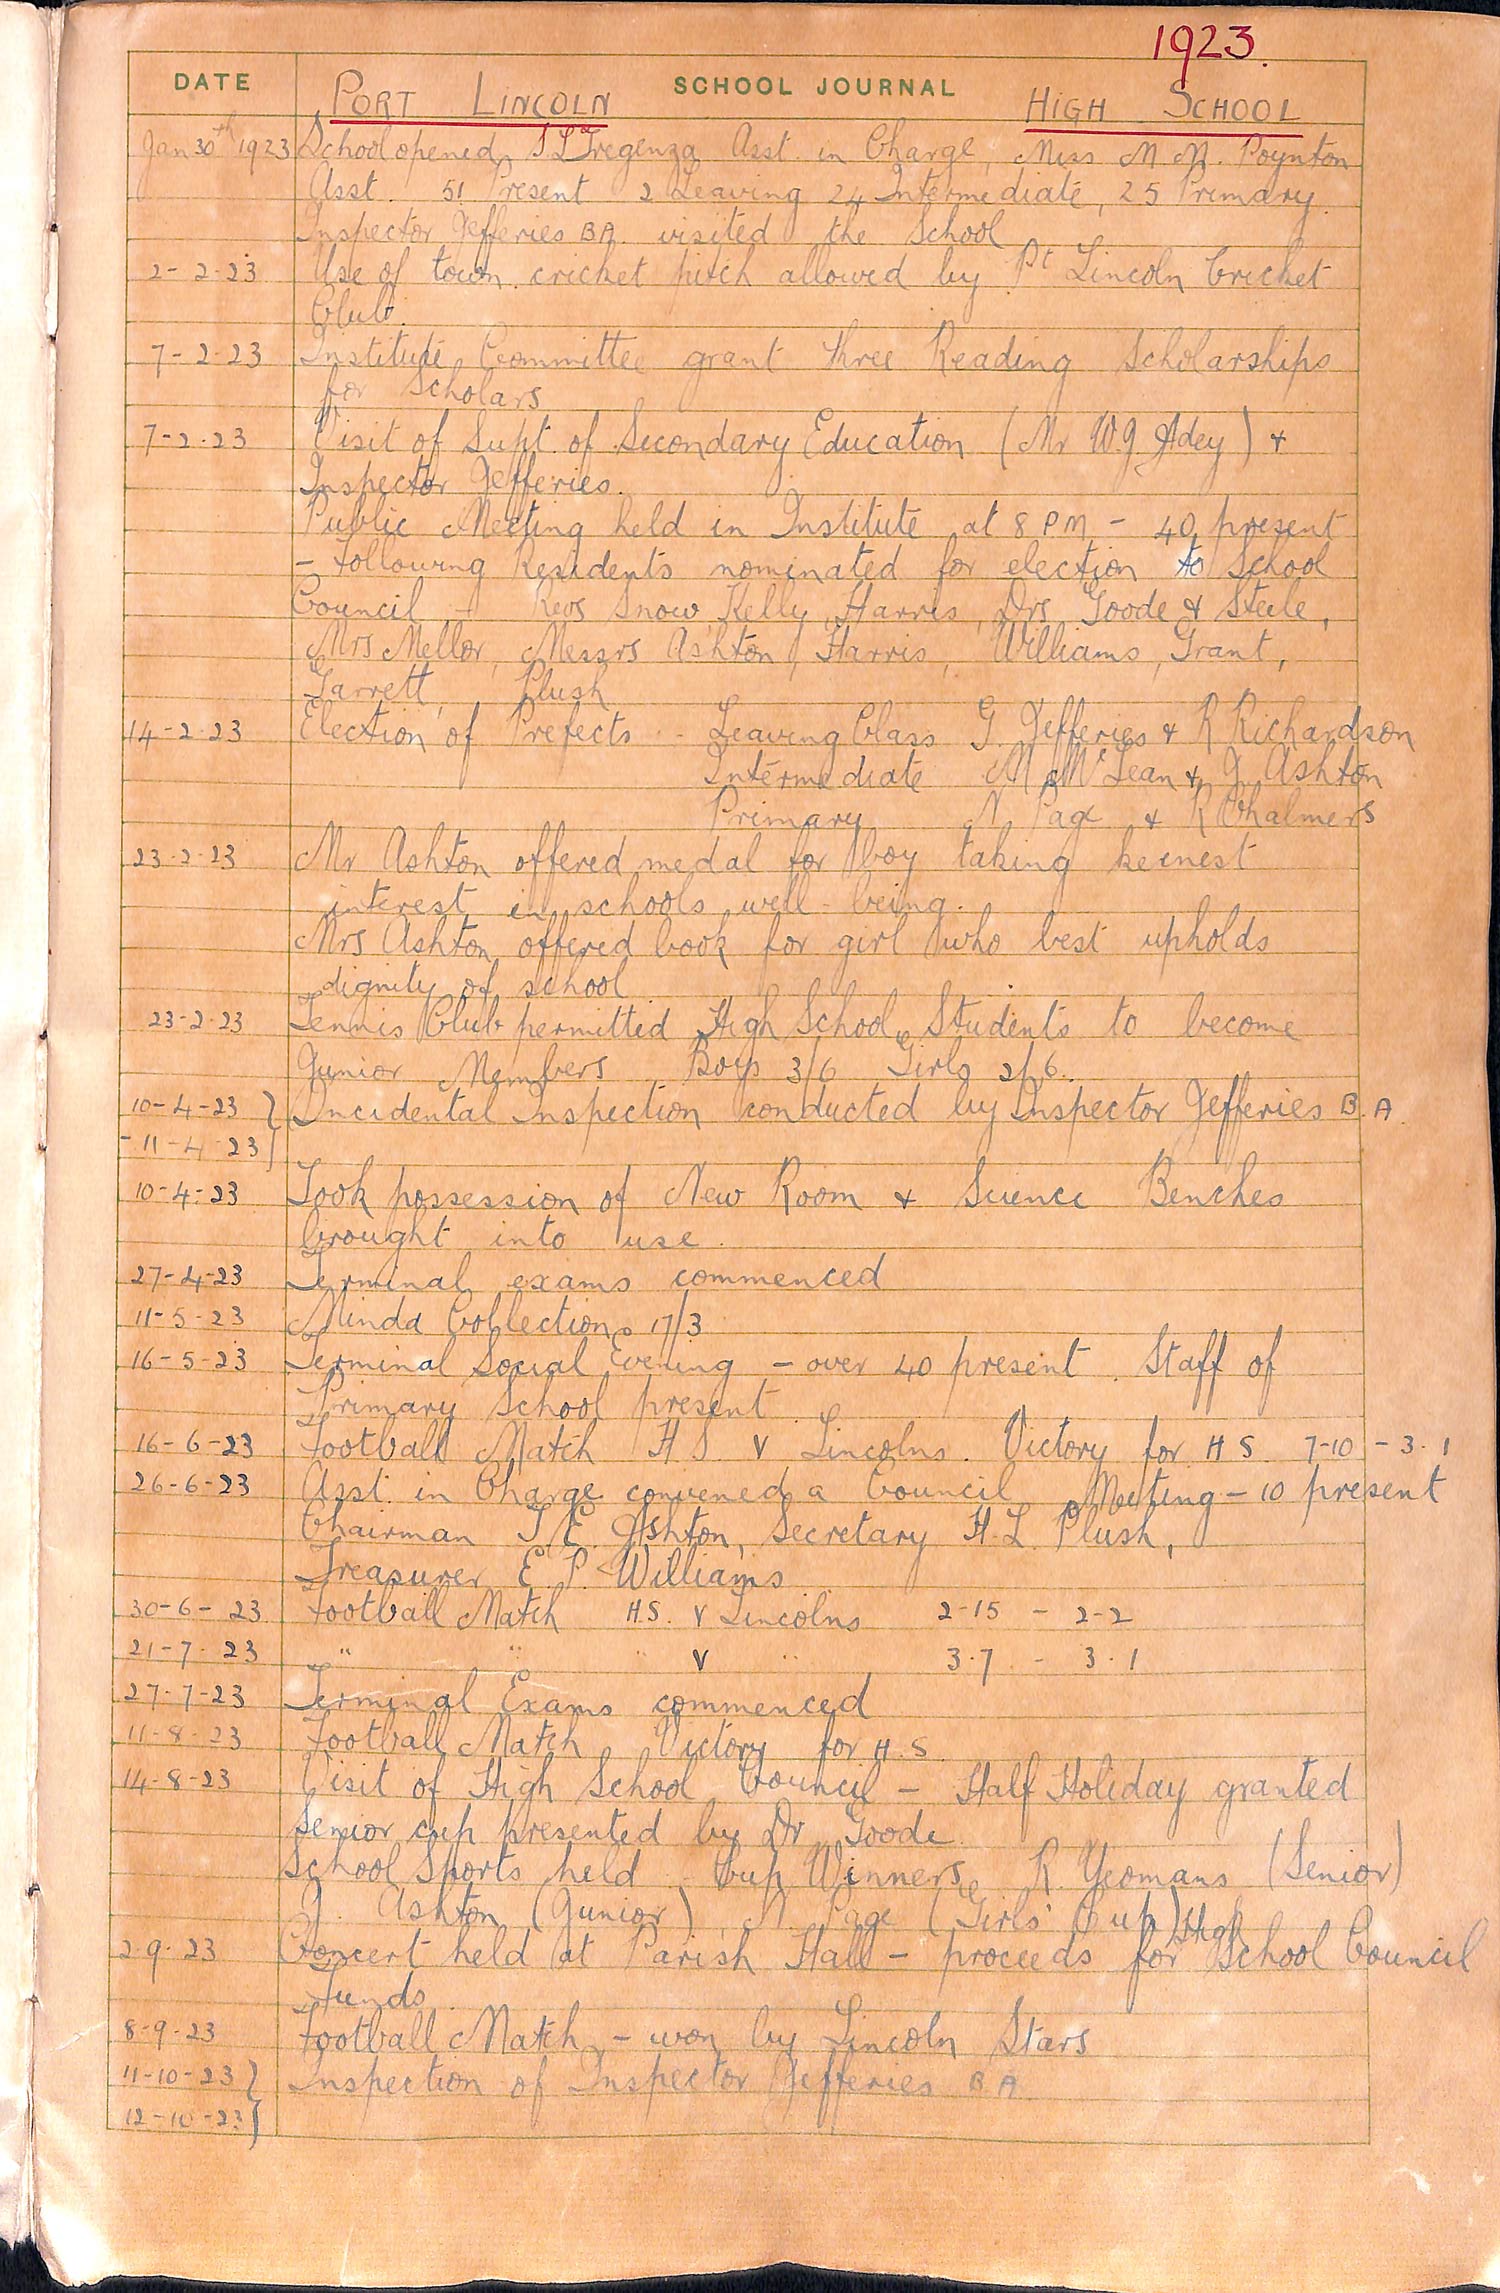 1923.
DATE SCHOOL JOURNAL
PORT LINCOLN HIGH SCHOOL
Jan 30th 1923 School opened, S L Tregenza Asst. in Charge, Miss M. M. Poynton
Asst. 51 Present 2 Leaving 24 Intermediate, 25 Primary.
Inspector Jefferies BA. visited the School
2-2-23 Use of town cricket pitch allowed by Pt Lincoln Cricket
Club.
7-2-23 Institute Committee grant three Reading Scholarships
for Scholars
7-2-23 Visit of Supt. of Secondary Education (Mr W.G. Adey) +
Inspector Jefferies.
Public Meeting held in Institute at 8 PM - 40 present
- Following Residents nominated for election to School
Council - Revs Snow, Kelly, Harris, Drs Goode & Steele,
Mrs Mellor, Messrs Ashton, Harris, Williams, Grant,
Garrett, Plush
14-2-23 Election of Prefects - Leaving Class G. Jefferies + R Richardson
Intermediate M McLean + J. Ashton
Primary N Page + R Chalmers
23-2-23 Mr Ashton offered medal for boy taking keenest
interest in schools well-being.
Mrs Ashton offered book for girl who best upholds
dignity of school
23-2-23 Tennis Club permitted High School Students to become
Junior Members Boys 3/6 Girls 2/6.
10-4-23 } Incidental Inspection conducted by Inspector Jefferies B.A.
-11-4-23 }
10-4-23 Took possession of New Room + Science Benches
brought into use.
27-4-23 Terminal exams commenced
11-5-23 Minda Collections 17/3
16-5-23 Terminal Social Evening - over 40 present. Staff of
Primary School present
16-6-23 Football Match H S. v Lincolns. Victory for H S. 7-10 - 3.1
26-6-23 Asst. in Charge convened a Council Meeting - 10 present
Chairman T. E. Ashton, Secretary H. L Plush,
Treasurer E. P. Williams
30-6-23 Football Match H.S. v Lincolns 2-15 - 2-2
21-7-23 " " " v " 3.7 - 3.1
27-7-23 Terminal Exams commenced
11-8-23 Football Match Victory for H.S.
14-8-23 Visit of High School Council - Half Holiday granted
Senior cup presented by Dr Goode.
School Sports held. Cup Winners, R. Yeomans (Senior)
J. Ashton (Junior), N. Page (Girls' Cup)
2-9-23 Concert held at Parish Hall - proceeds for High School Council
Funds.
8-9-23 Football Match - won by Lincoln Stars
11-10-23 } Inspection of Inspector Jefferies B A
12-10-23 }